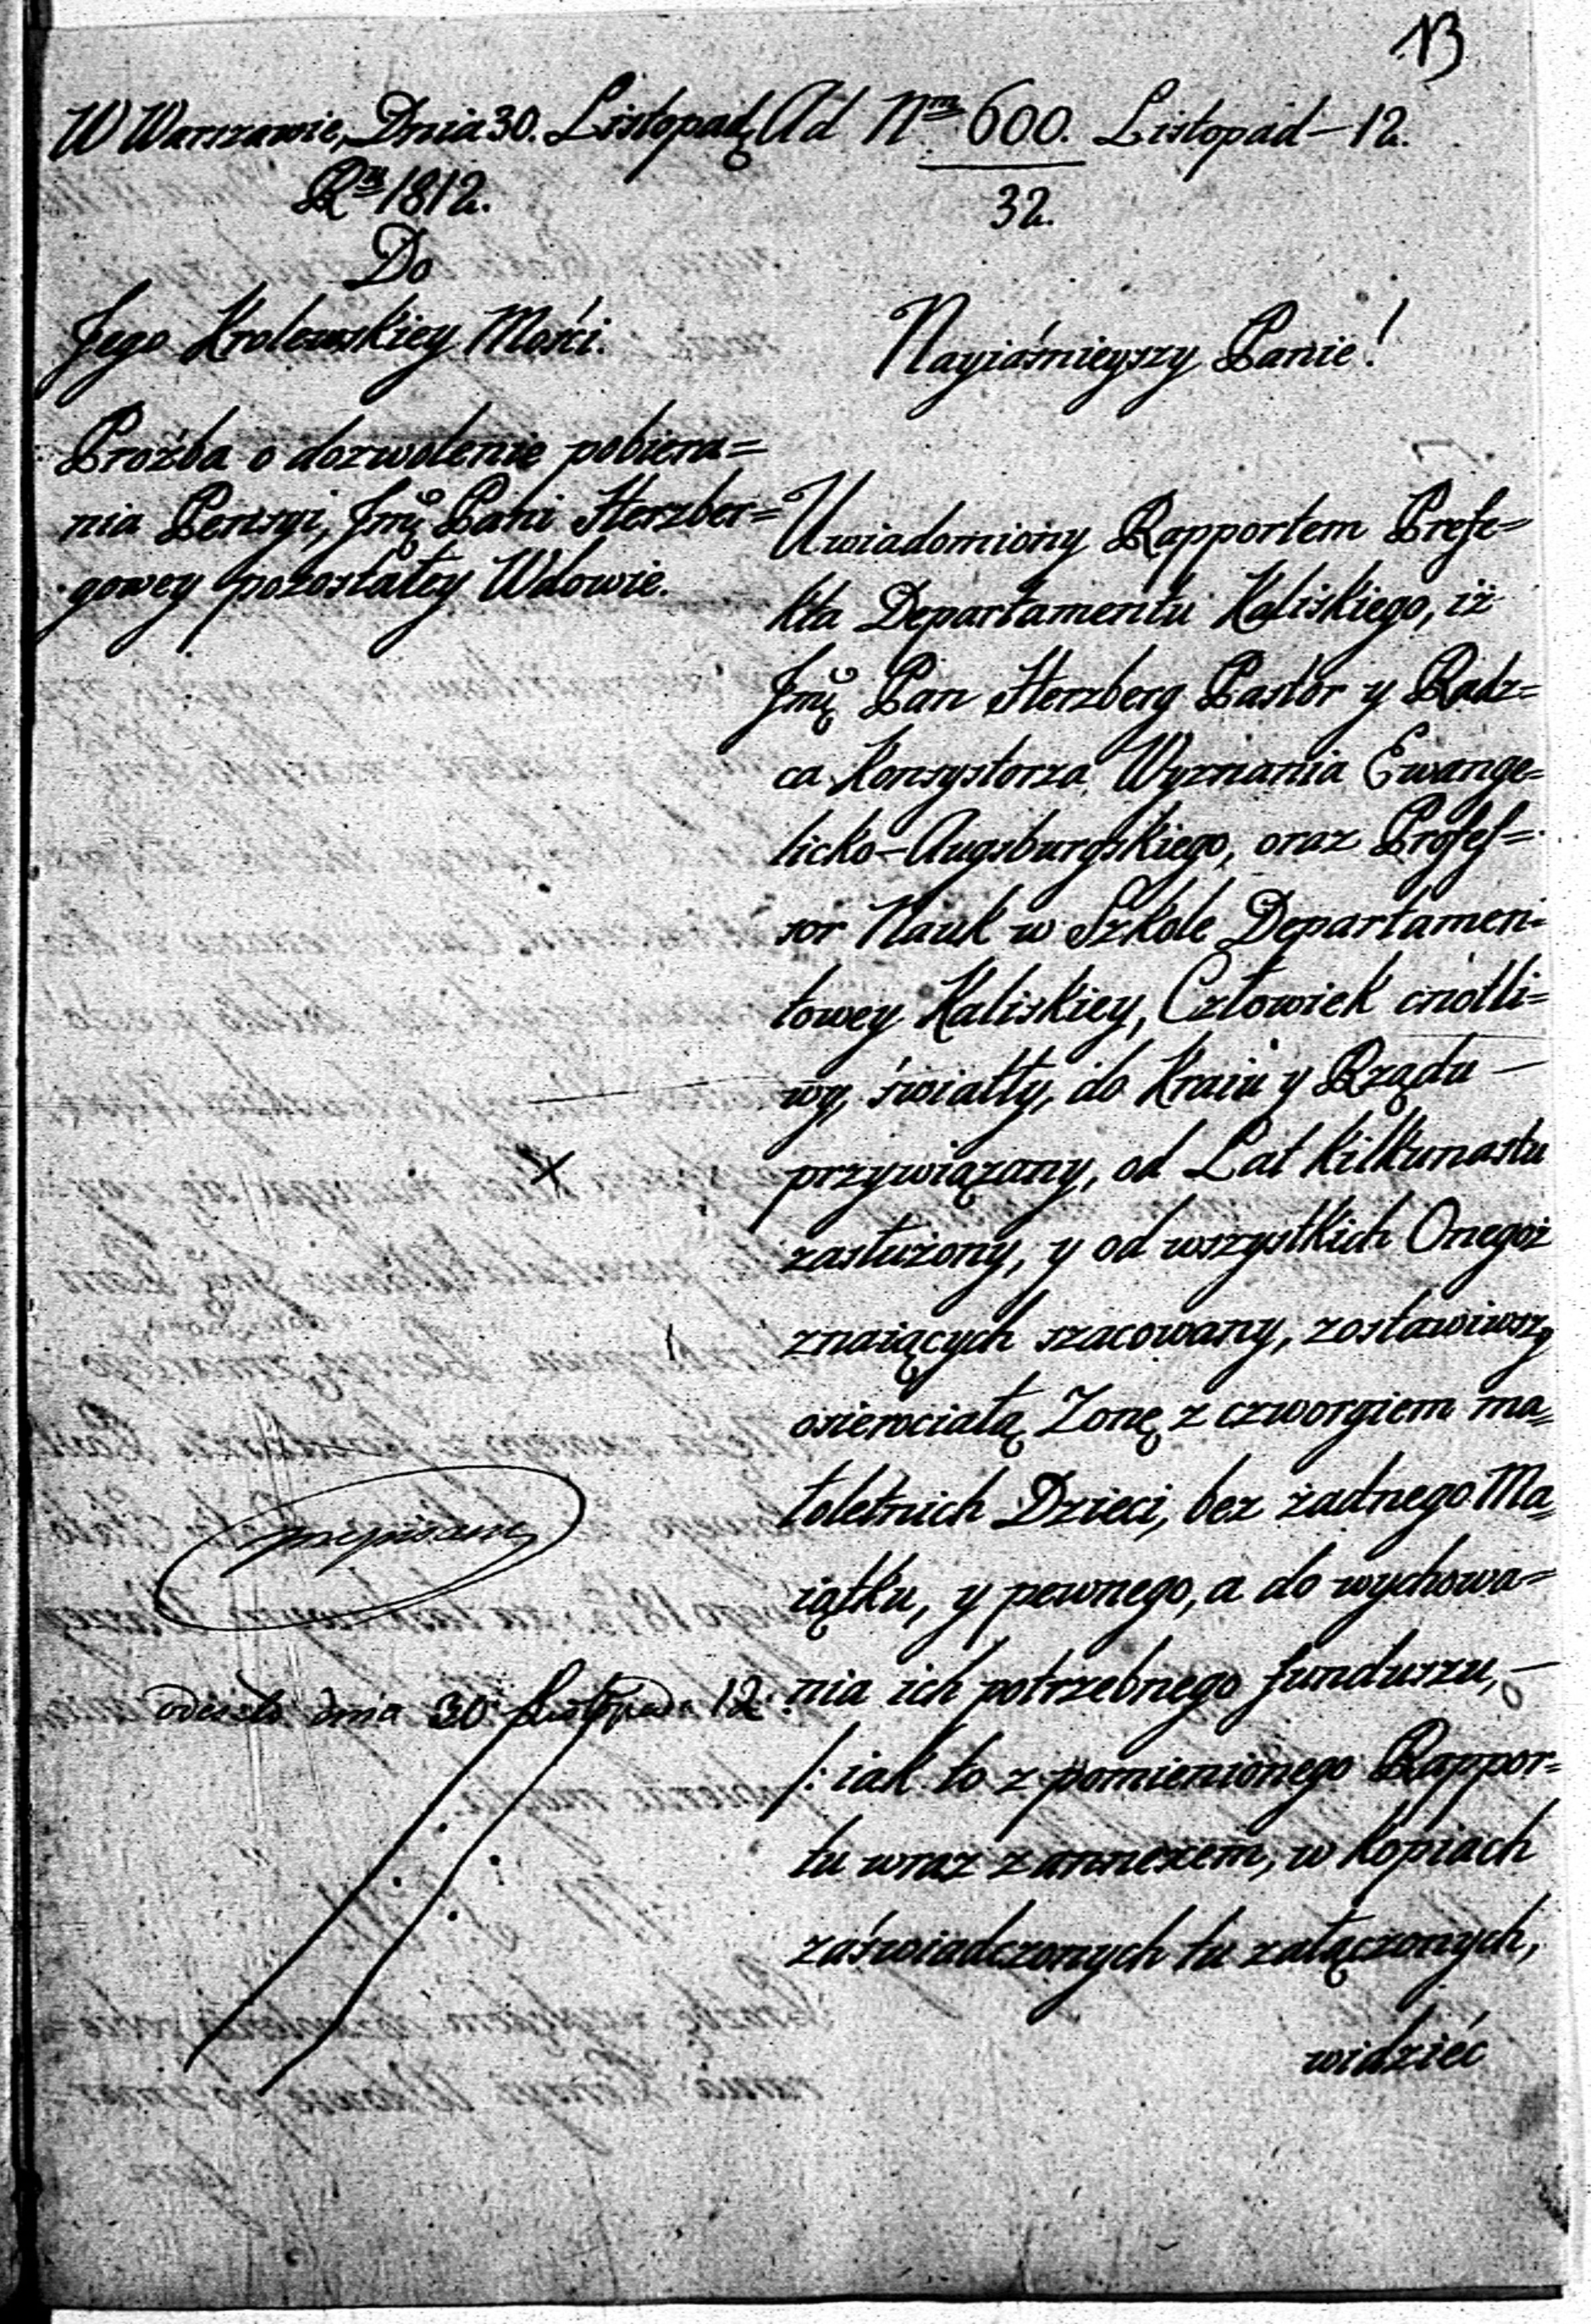 13
W Warszawie, Dnia 30. Listopadą
Rᵘ 1812.
Do
Jego Krolewskiey Mości.
Proźba o dozwolenie pobiera=
nia Pensyi, Jmę Pani Herzber=
gowey pozostałey Wdowie.
przepisany
odeszło dnia 30 Listopada 12.
Ad Nᵐ 600. Listopad – 12.
32.
Nayiaśnieyszy Panie!
Uwiadomiony Rapportem Prefe=
kta Departamentu Kaliskiego, iż
Jmę Pan Herzberg Pastor y Radz=
ca Konsystorza Wyznania Ewange=
licko-Augsburgskiego, oraz Profes=
sor Nauk w Szkole Departamen=
towey Kaliskiey, Człowiek cnotli=
wy, światły, do Kraiu y Rządu —
przywiązany, od Lat kilkunastu
zasłużony, y od wszystkich Onegoż
znaiących szacowany, zostawiwszy
osierociałą Zonę z czworgiem ma=
łoletnich Dzieci, bez żadnego Ma=
iątku, y pewnego, a do wychowa=
nia ich potrzebnego funduszu, —
/: iak to z pomienionego Rappor=
tu wraz z annexem, w kopiach
zaświadczonych tu załączonych,
widzieć